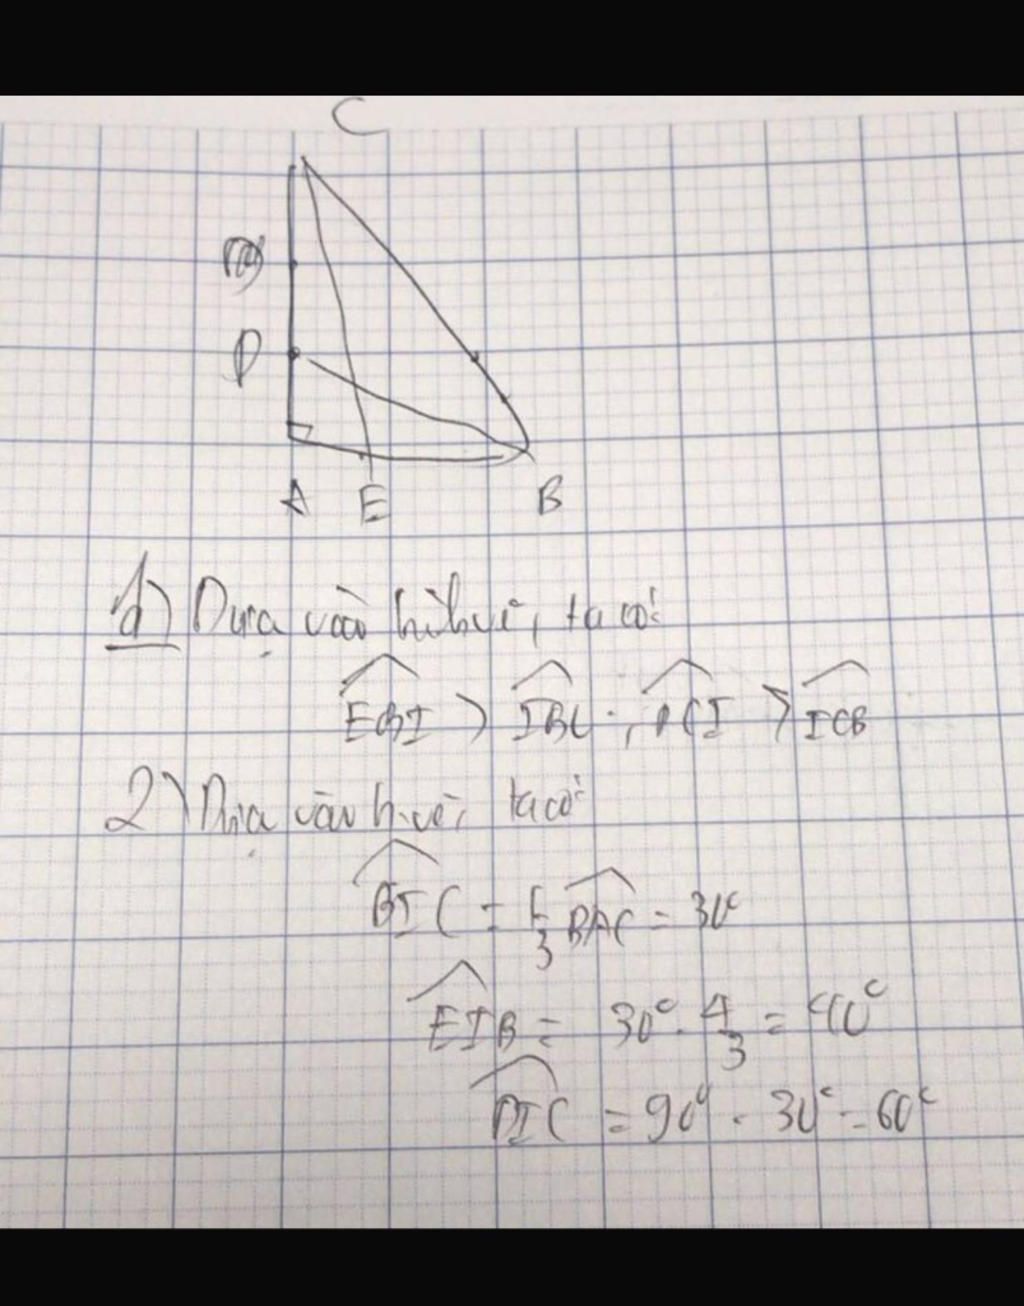 C
D
A E B
1) Dựa vào hình vẽ, ta có:
EBI > IBC ; DCI > ICB
2) Dựa vào h.vẽ, ta có:
BIC = 1/3 BAC = 30°
EIB = 30° . 4/3 = 40°
DIC = 90° - 30° = 60°